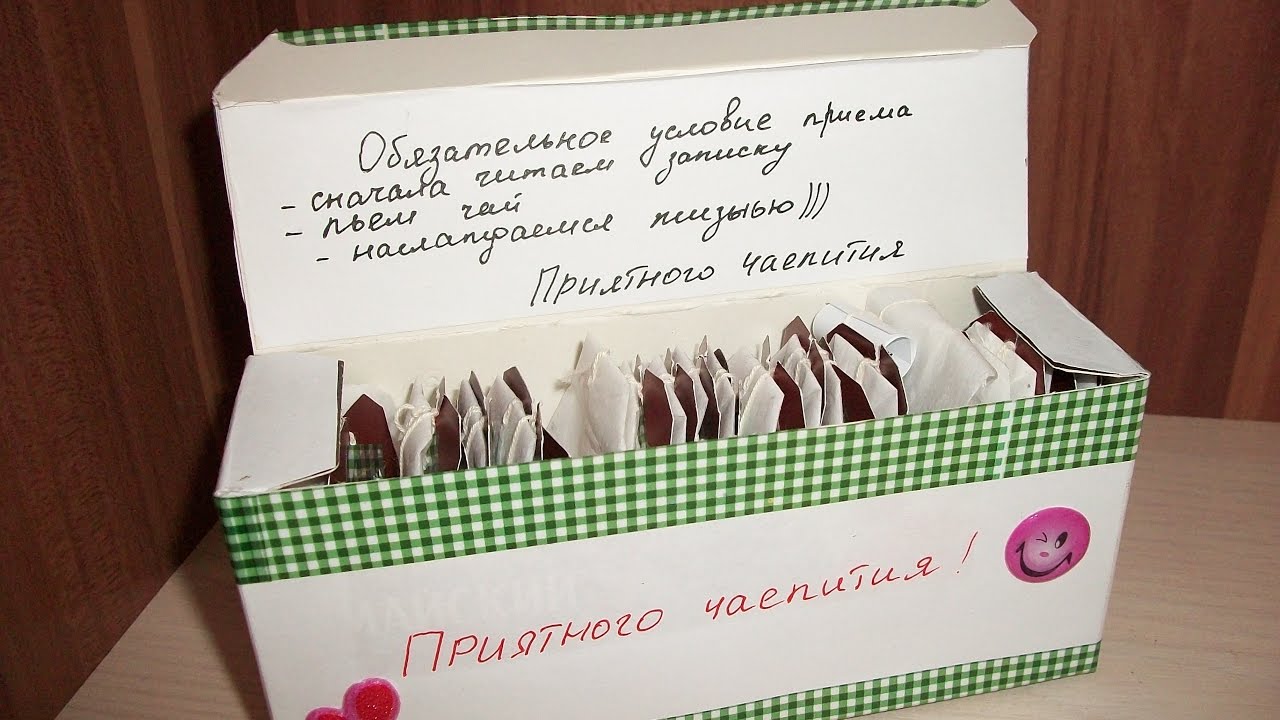 Обязательное условие приема
- сначала читаем записку
- пьем чай
- наслаждаемся жизнью)))
Приятного чаепития
МАЙСКИЙ
Приятного чаепития!